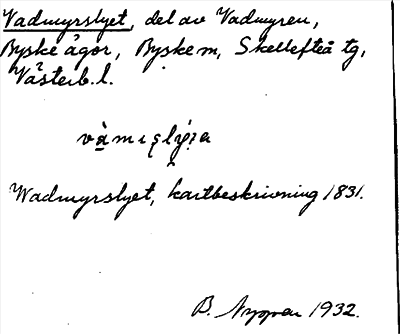 Vadmyrslyet, del av Vadmyren,
Byske ägor, Byske sn, Skellefteå tg,
Västerb. l.
Wadmyrslyet, kartbeskrivning 1831.
B. 1932.